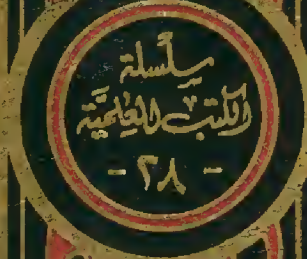 سلسلة
الكتب العلمية
- ٢٨ -